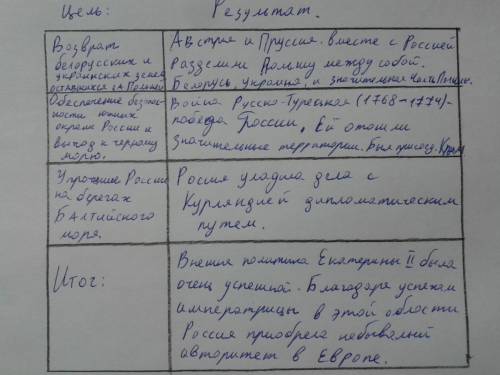 Цель: Результат.
Возврат
белорусских и
украинских земель
оставшихся за Польшей
Австрия и Пруссия вместе с Россией
разделили Польшу между собой.
Белорусь, Украина, и значительная часть Польши.
Обеспечение безопас-
ности южных
окраин России и
выход к Черному
морю.
Война Русско-Турецкая (1768-1774)-
победа России, Ей отошли
значительные территории. Был присоед. Крым
Упрочнение России
на берегах
Балтийского
моря.
Россия уладила дела с
Курляндией дипломатическим
путем.
Итог:
Внешняя политика Екатерины II была
очень успешной. Благодаря успехам
императрицы в этой области
Россия приобрела небывалый
авторитет в Европе.